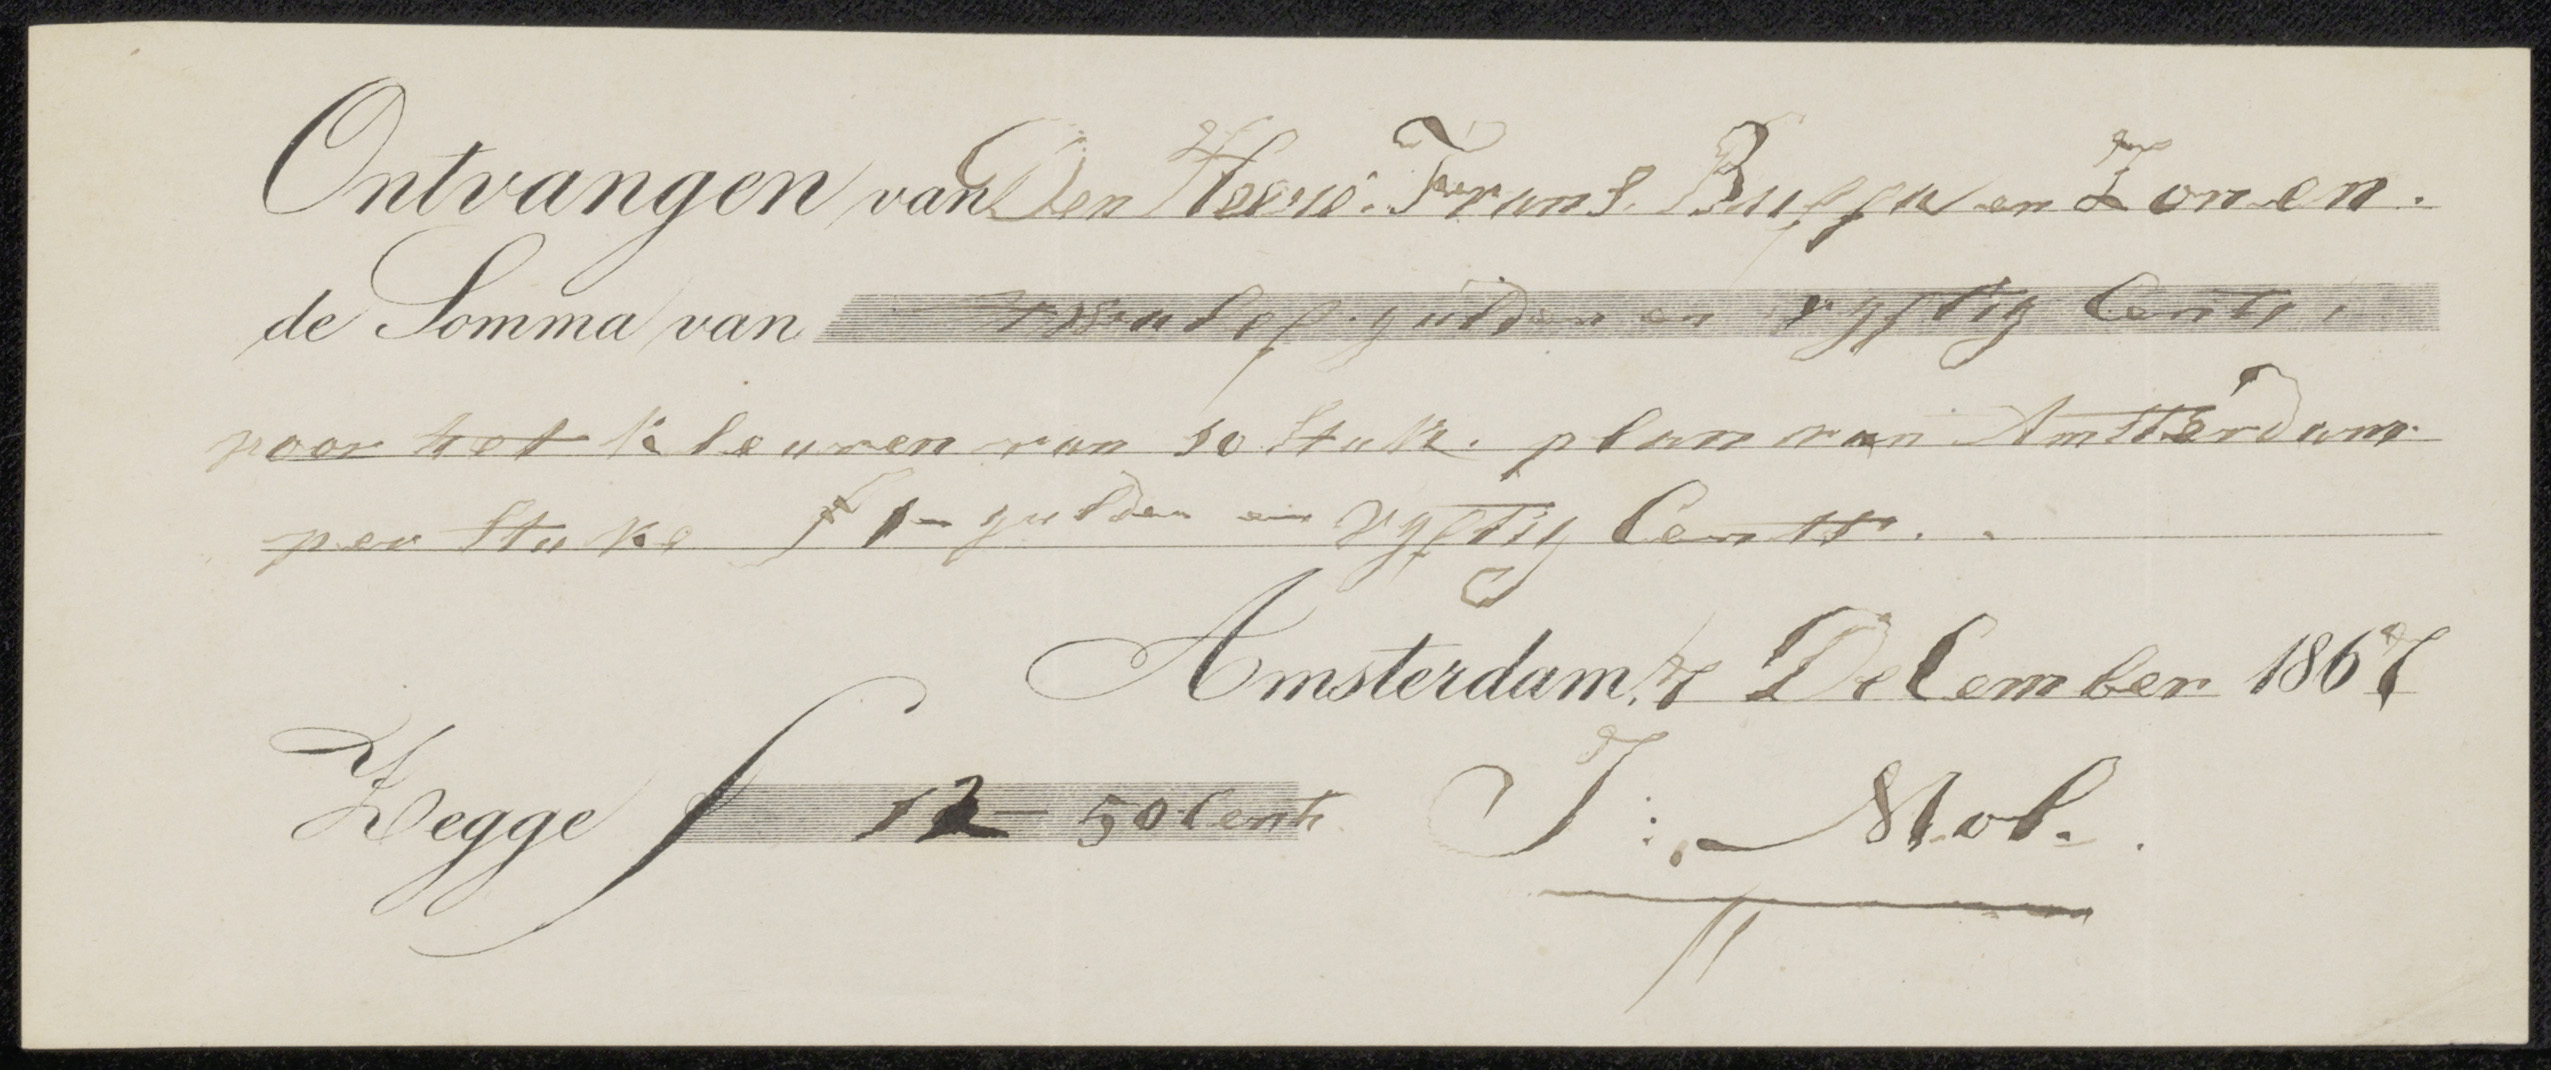 Ontvangen van Den Heere. Frans. Buffa en Zonen.
de Somma van gulden en vyftig Cents.
voor het kleuren van 10 stuk. plan van Amsterdam
per stuks f 1 - gulden en vyftig Cents..
Amsterdam, 7 DeCember 1867
Zegge f 12 - 50 Cents J: Mol..